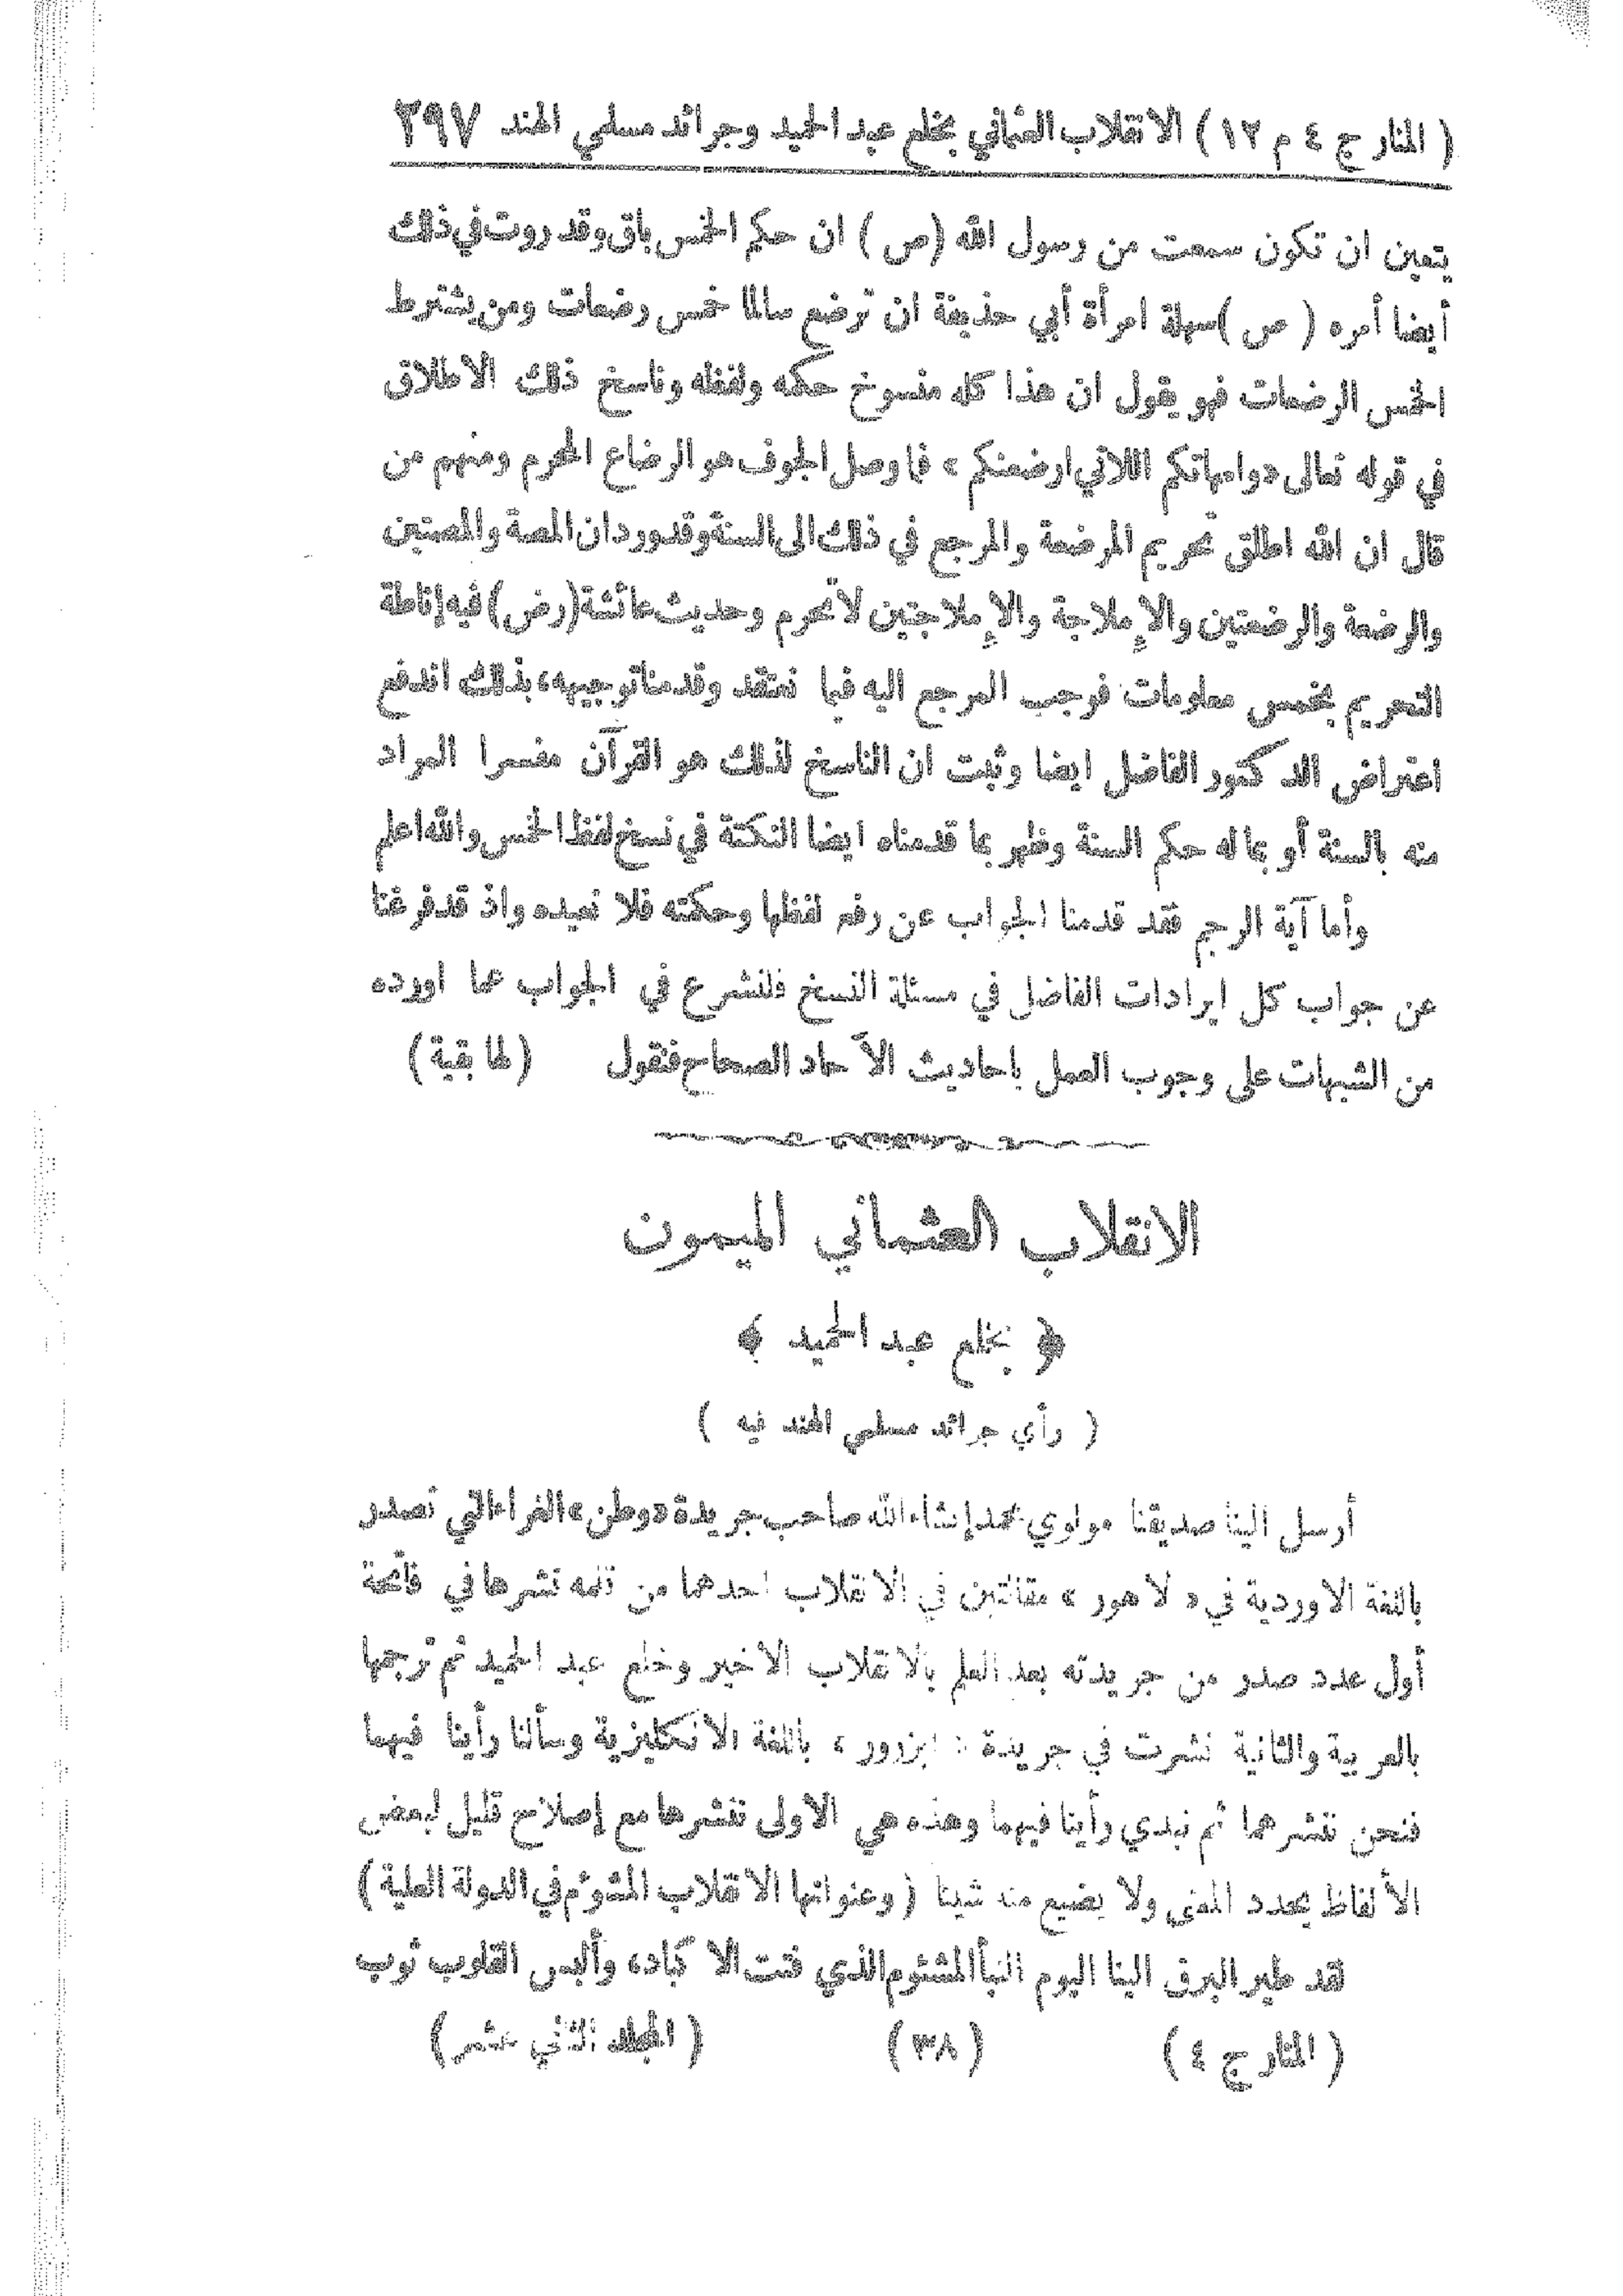 ( المنار ج ٤ م ١٢ ) الانقلاب العثماني بخلع عبد الحميد وجرائد مسلمي الهند ٢٩٧
يتعين ان تكون سمعت من رسول الله (ص) ان حكم الخمس باق وقد روت في ذلك
أيضا أمره ( ص ) سهلة امرأة أبي حذيفة ان ترضع سالما خمس رضعات ومن يشترط
الخمس الرضعات فهو يقول ان هذا كله منسوخ حكمه ولفظه وناسخ ذلك الاطلاق
في قوله تعالى « وامهاتكم اللاتي ارضعنكم » فما وصل الجوف هو الرضاع المحرم ومنهم من
قال ان الله اطلق تحريم المرضعة والمرجع في ذلك الى السنة وقد ورد ان المصة والمصتين
والرضعة والرضعتين والإملاجة والإملاجتين لا تحرم وحديث عائشة (رض) فيه إناطة
التحريم بخمس معلومات فوجب المرجع اليه فيما نعتقد وقدمنا توجيهه، بذلك اندفع
اعتراض الدكتور الفاضل ايضا وثبت ان الناسخ لذلك هو القرآن مفسرا المراد
منه بالسنة أو بما له حكم السنة وظهر بما قدمناه ايضا النكتة في نسخ لفظ الخمس والله اعلم
وأما آية الرجم فقد قدمنا الجواب عن رفع لفظها وحكمته فلا نعيده واذ قد فرغنا
عن جواب كل ايرادات الفاضل في مسئلة النسخ فلنشرع في الجواب عما اورده
من الشبهات على وجوب العمل باحاديث الآحاد الصحاح فنقول ( لها بقية )
الانقلاب العثماني الميمون
﴿ بخلع عبد الحميد ﴾
( رأي جرائد مسلمي الهند فيه )
أرسل الينا صديقنا مولوي محمد إنشاء الله صاحب جريدة «وطن» الغراء التي تصدر
باللغة الاوردية في « لاهور » مقالتين في الانقلاب احدهما من قلمه نشرها في فاتحة
أول عدد صدر من جريدته بعد العلم بالانقلاب الاخير وخلع عبد الحميد ثم ترجمها
بالعربية والثانية نشرت في جريدة « ابزرور » باللغة الانكليزية وسألنا رأينا فيهما
فنحن ننشرهما ثم نبدي رأينا فيهما وهذه هي الاولى ننشرها مع إصلاح قليل لبعض
الألفاظ يحدد المعنى ولا يضيع منه شيئا ( وعنوانها الانقلاب المشؤم في الدولة العلية )
لقد طير البرق الينا اليوم النبأ المشئوم الذي فتت الاكباد، وألبس القلوب ثوب
( المنار ج ٤ ) ( ٣٨ ) ( المجلد الثاني عشر )